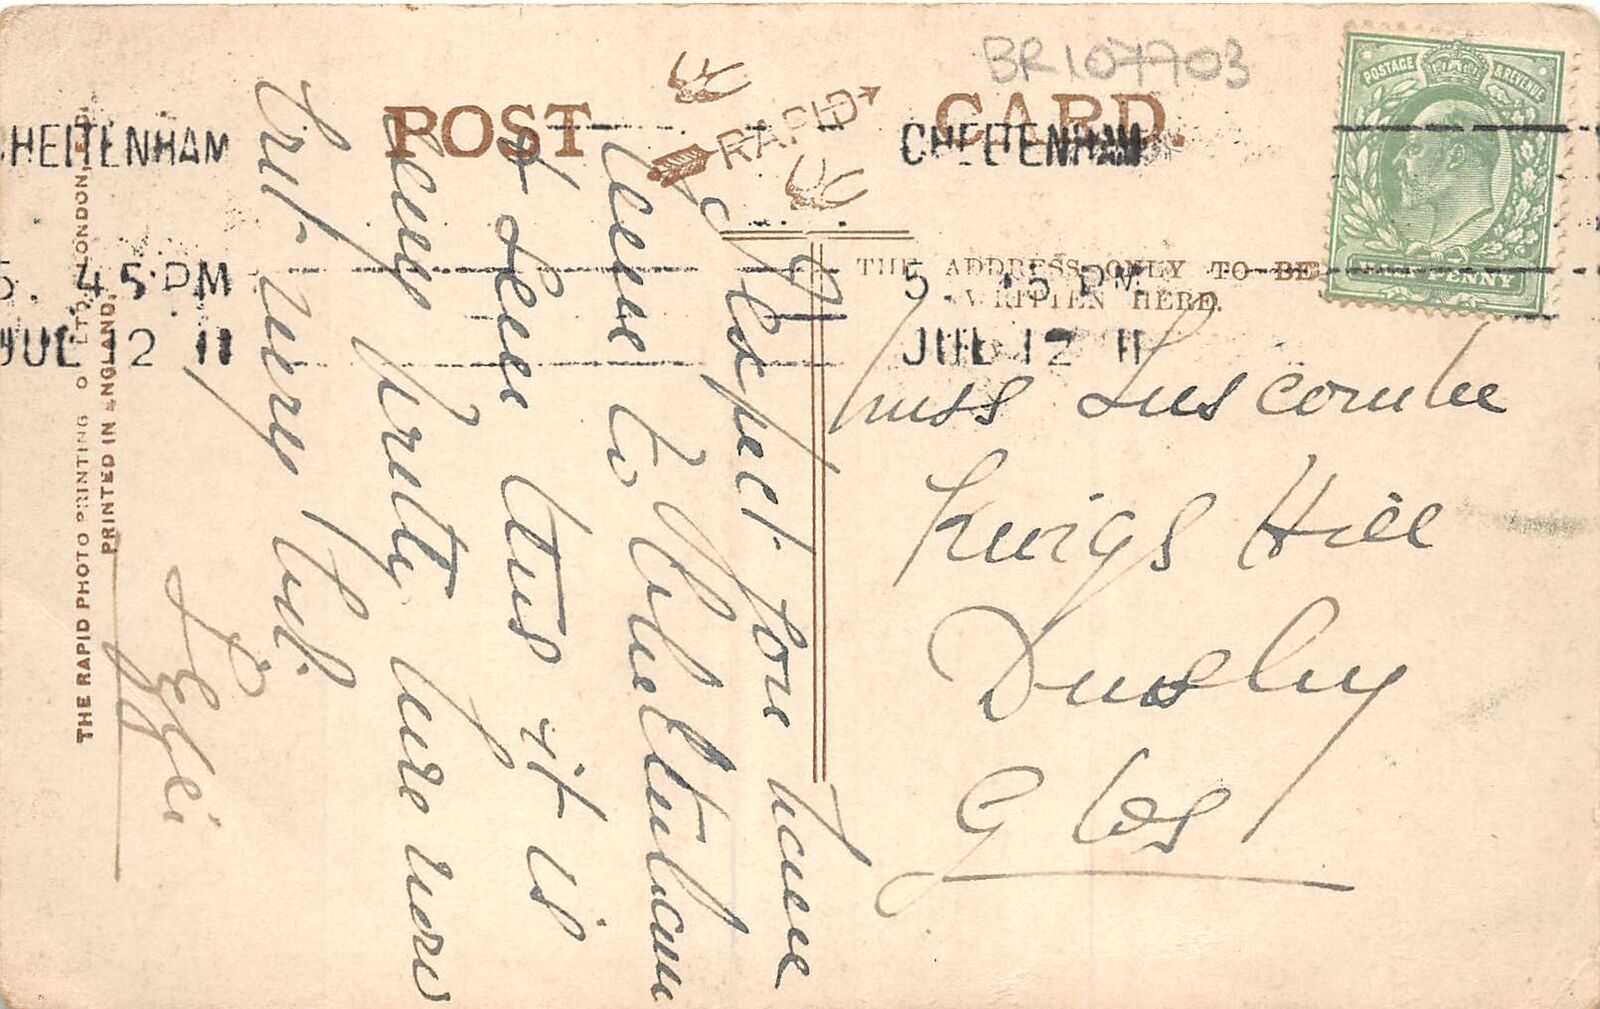 BR107703
POST CARD.
RAPID
POSTAGE & REVENUE
HALF PENNY
CHELTENHAM
5. 45 PM
JUL 12 11
CHELTENHAM
5. 45 PM
JUL 12 11
THE ADDRESS ONLY TO BE
WRITTEN HERE.
I expect you have
been to Cheltenham
& seen this it is
very pretty here now
but very hot.
Effie
Miss Luscombe
Kings Hill
Dursley
Glos
THE RAPID PHOTO PRINTING CO LTD, LONDON, E.C.
PRINTED IN ENGLAND.